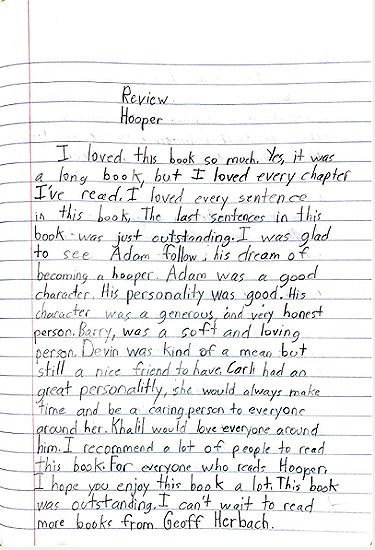 Review
Hooper
I loved this book so much. Yes, it was
a long book, but I loved every chapter
I've read. I loved every sentence
in this book. The last sentences in this
book was just outstanding. I was glad
to see Adam follow, his dream of
becoming a hooper. Adam was a good
character. His personality was good. His
character was a generous, and very honest
person. Barry, was a soft and loving
person. Devin was kind of a mean but
still a nice friend to have. Carli had an
great personalitly, she would always make
time and be a caring person to everyone
around her. Khalil would love everyone around
him. I recommend a lot of people to read
this book. For everyone who reads Hooper,
I hope you enjoy this book a lot. This book
was outstanding. I can't wait to read
more books from Geoff Herbach.